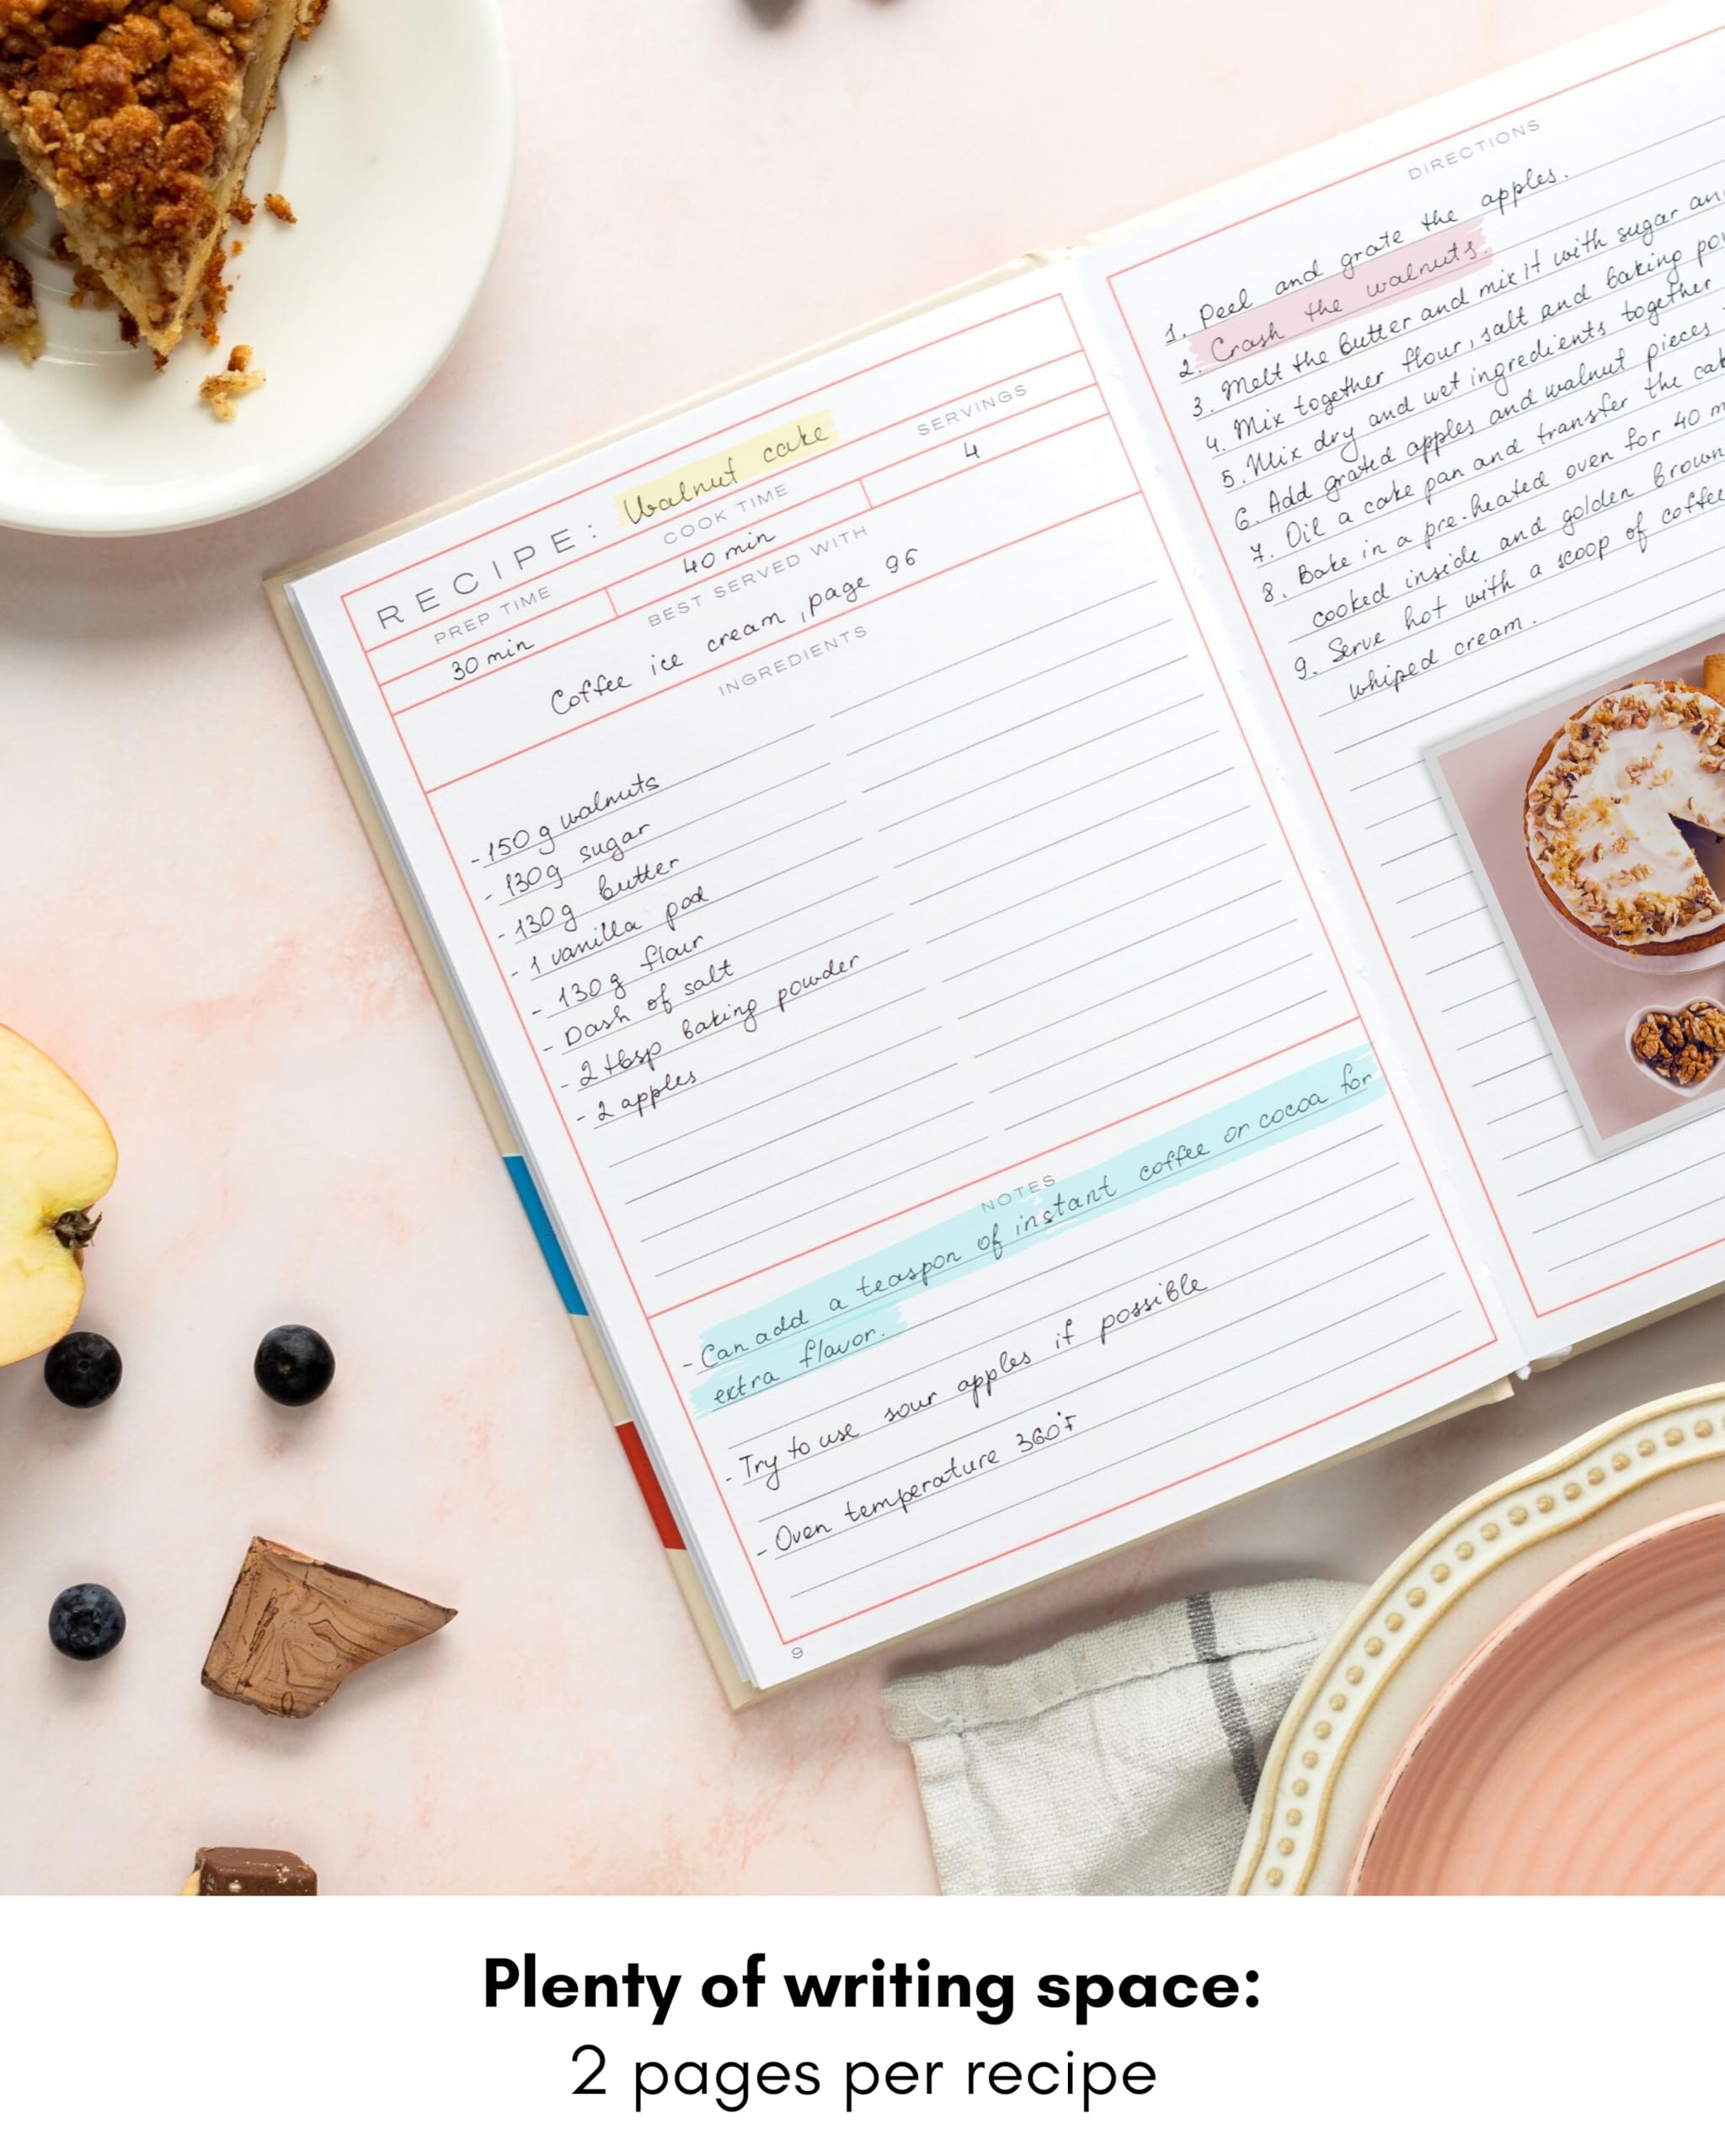 RECIPE: Walnut cake
PREP TIME
COOK TIME
SERVINGS
30 min
40 min
4
BEST SERVED WITH
Coffee ice cream, page 96
INGREDIENTS
- 150 g walnuts
- 130g sugar
- 130g butter
- 1 vanilla pod
- 130 g flour
- Dash of salt
- 2 tbsp baking powder
- 2 apples
NOTES
- Can add a teaspon of instant coffee or cocoa for
extra flavor.
- Try to use sour apples if possible
- Oven temperature 360°F
9
DIRECTIONS
1. Peel and grate the apples.
2. Crash the walnuts.
3. Melt the butter and mix it with sugar
4. Mix together flour, salt and baking
5. Mix dry and wet ingredients together
6. Add grated apples and walnut pieces
7. Oil a cake pan and transfer the
8. Bake in a pre-heated oven for 40
cooked inside and golden brown
9. Serve hot with a scoop of coffee
whiped cream.
Plenty of writing space:
2 pages per recipe